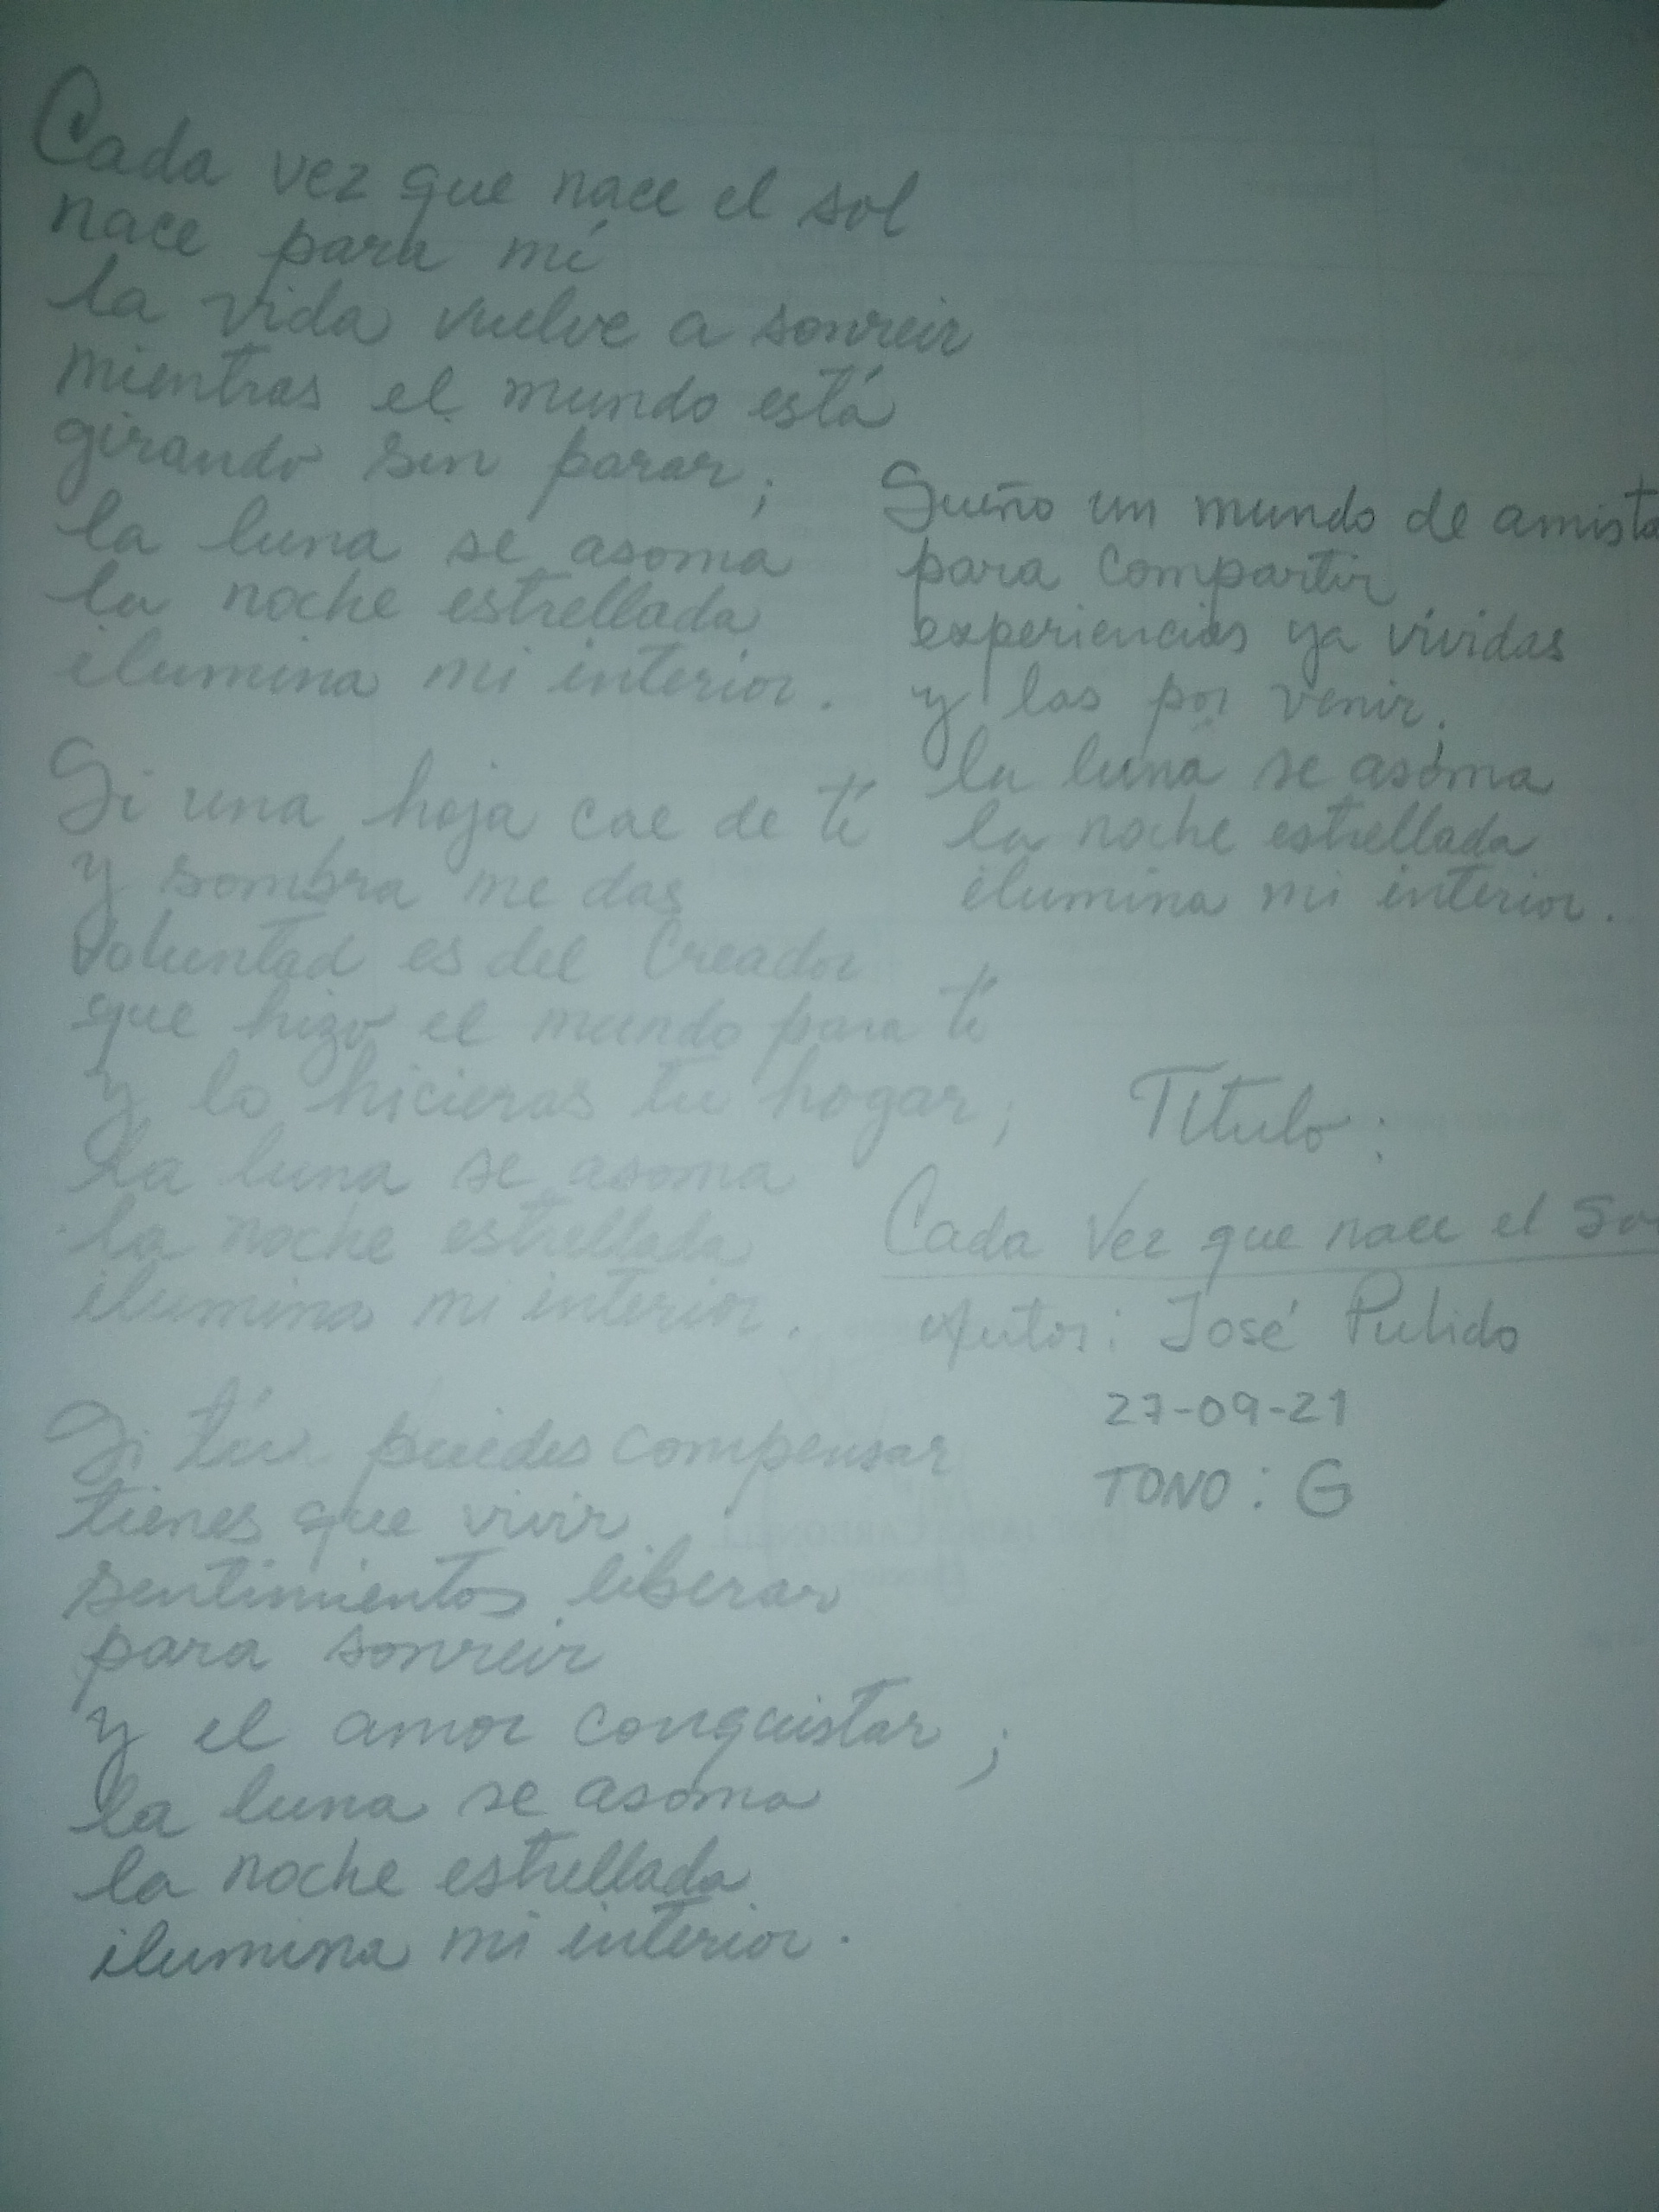 Cada vez que nace el sol
nace para mí
la vida vuelve a sonreir
mientras el mundo está
girando sin parar;
la luna se asoma
la noche estrellada
ilumina mi interior.
Si una hoja cae de tí
y sombra me das
Voluntad es del Creador
que hizo el mundo para tí
y lo hicieras tu hogar;
la luna se asoma
la noche estrellada
ilumina mi interior.
Si tú puedes compensar
tienes que vivir
sentimientos liberar
para sonreir
y el amor conquistar;
la luna se asoma
la noche estrellada
ilumina mi interior.
Sueño un mundo de amista
para compartir
experiencias ya vividas
y las por venir;
la luna se asoma
la noche estrellada
ilumina mi interior.
Título:
Cada Vez que nace el So
Autor: José Pulido
27-09-21
TONO: G